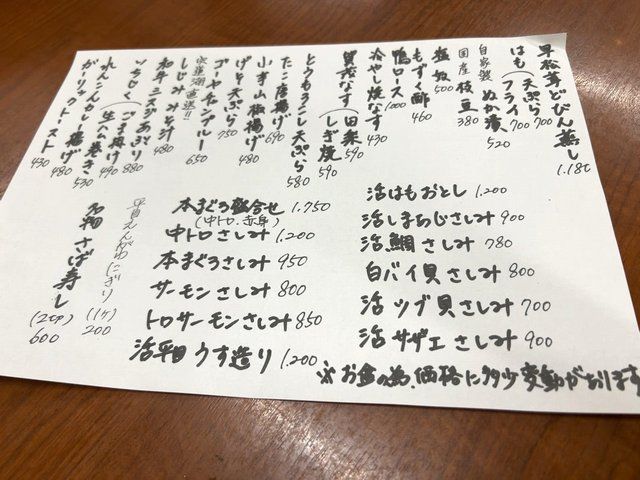 早松茸どびん蒸し 1.180
はも 天ぷら 700
フライ 700
自家製 ぬか漬 520
国産 枝豆 380
塩奴 500
もずく酢 460
鴨ロース 1000
冷やし焼なす 430
賀茂なす 田楽 590
しぎ焼 590
とうもろこし天ぷら 580
たこ唐揚げ 690
小芋山椒揚げ 480
げそ天ぷら 750
ゴーヤチャンプルー 650
宍道湖直送!!
しじみみそ汁 480
和牛ニスジあぶり 880
いちじく ごま掛け 490
生ハム巻き 530
れんこんカレー揚げ 480
ガーリックトースト 430
活はもおとし 1.200
活しまあじさしみ 900
活鯛さしみ 780
白バイ貝さしみ 800
活ツブ貝さしみ 700
活サザエさしみ 900
本まぐろ盛合せ 1.750
(中トロ.赤身)
中トロさしみ 1.200
本まぐろさしみ 950
サーモンさしみ 800
トロサーモンさしみ 850
活平目うす造り 1.200
平目えんがわ(にぎり) (1ケ) 200
名物 さば寿し (2切) 600
※お盆の為、価格に多少変動があります